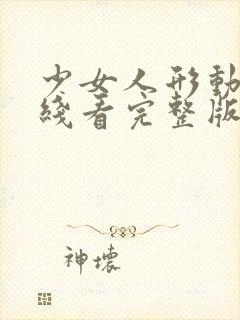 少女人形動
綫看完整版
神壞